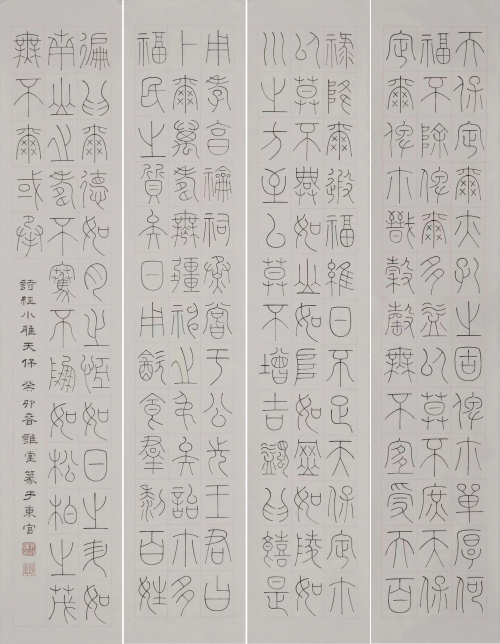 天保定爾亦孔之固俾尒單厚何
福不除俾爾多益以莫不庶天保
定爾俾尒戩穀罄無不宜受天百
祿降爾遐福維日不足天保定尒
以莫不興如山如阜如岡如陵如
川之方至以莫不增吉蠲為饎是
用孝享禴祠烝嘗于公先王君曰
卜爾萬壽無疆神之弔矣詒尒多
福民之質矣日用飲食群黎百姓
徧為爾德如月之恆如日之升如
南山之壽不騫不崩如松柏之茂
無不爾或承
詩經小雅天保 癸卯春堂篆于東官